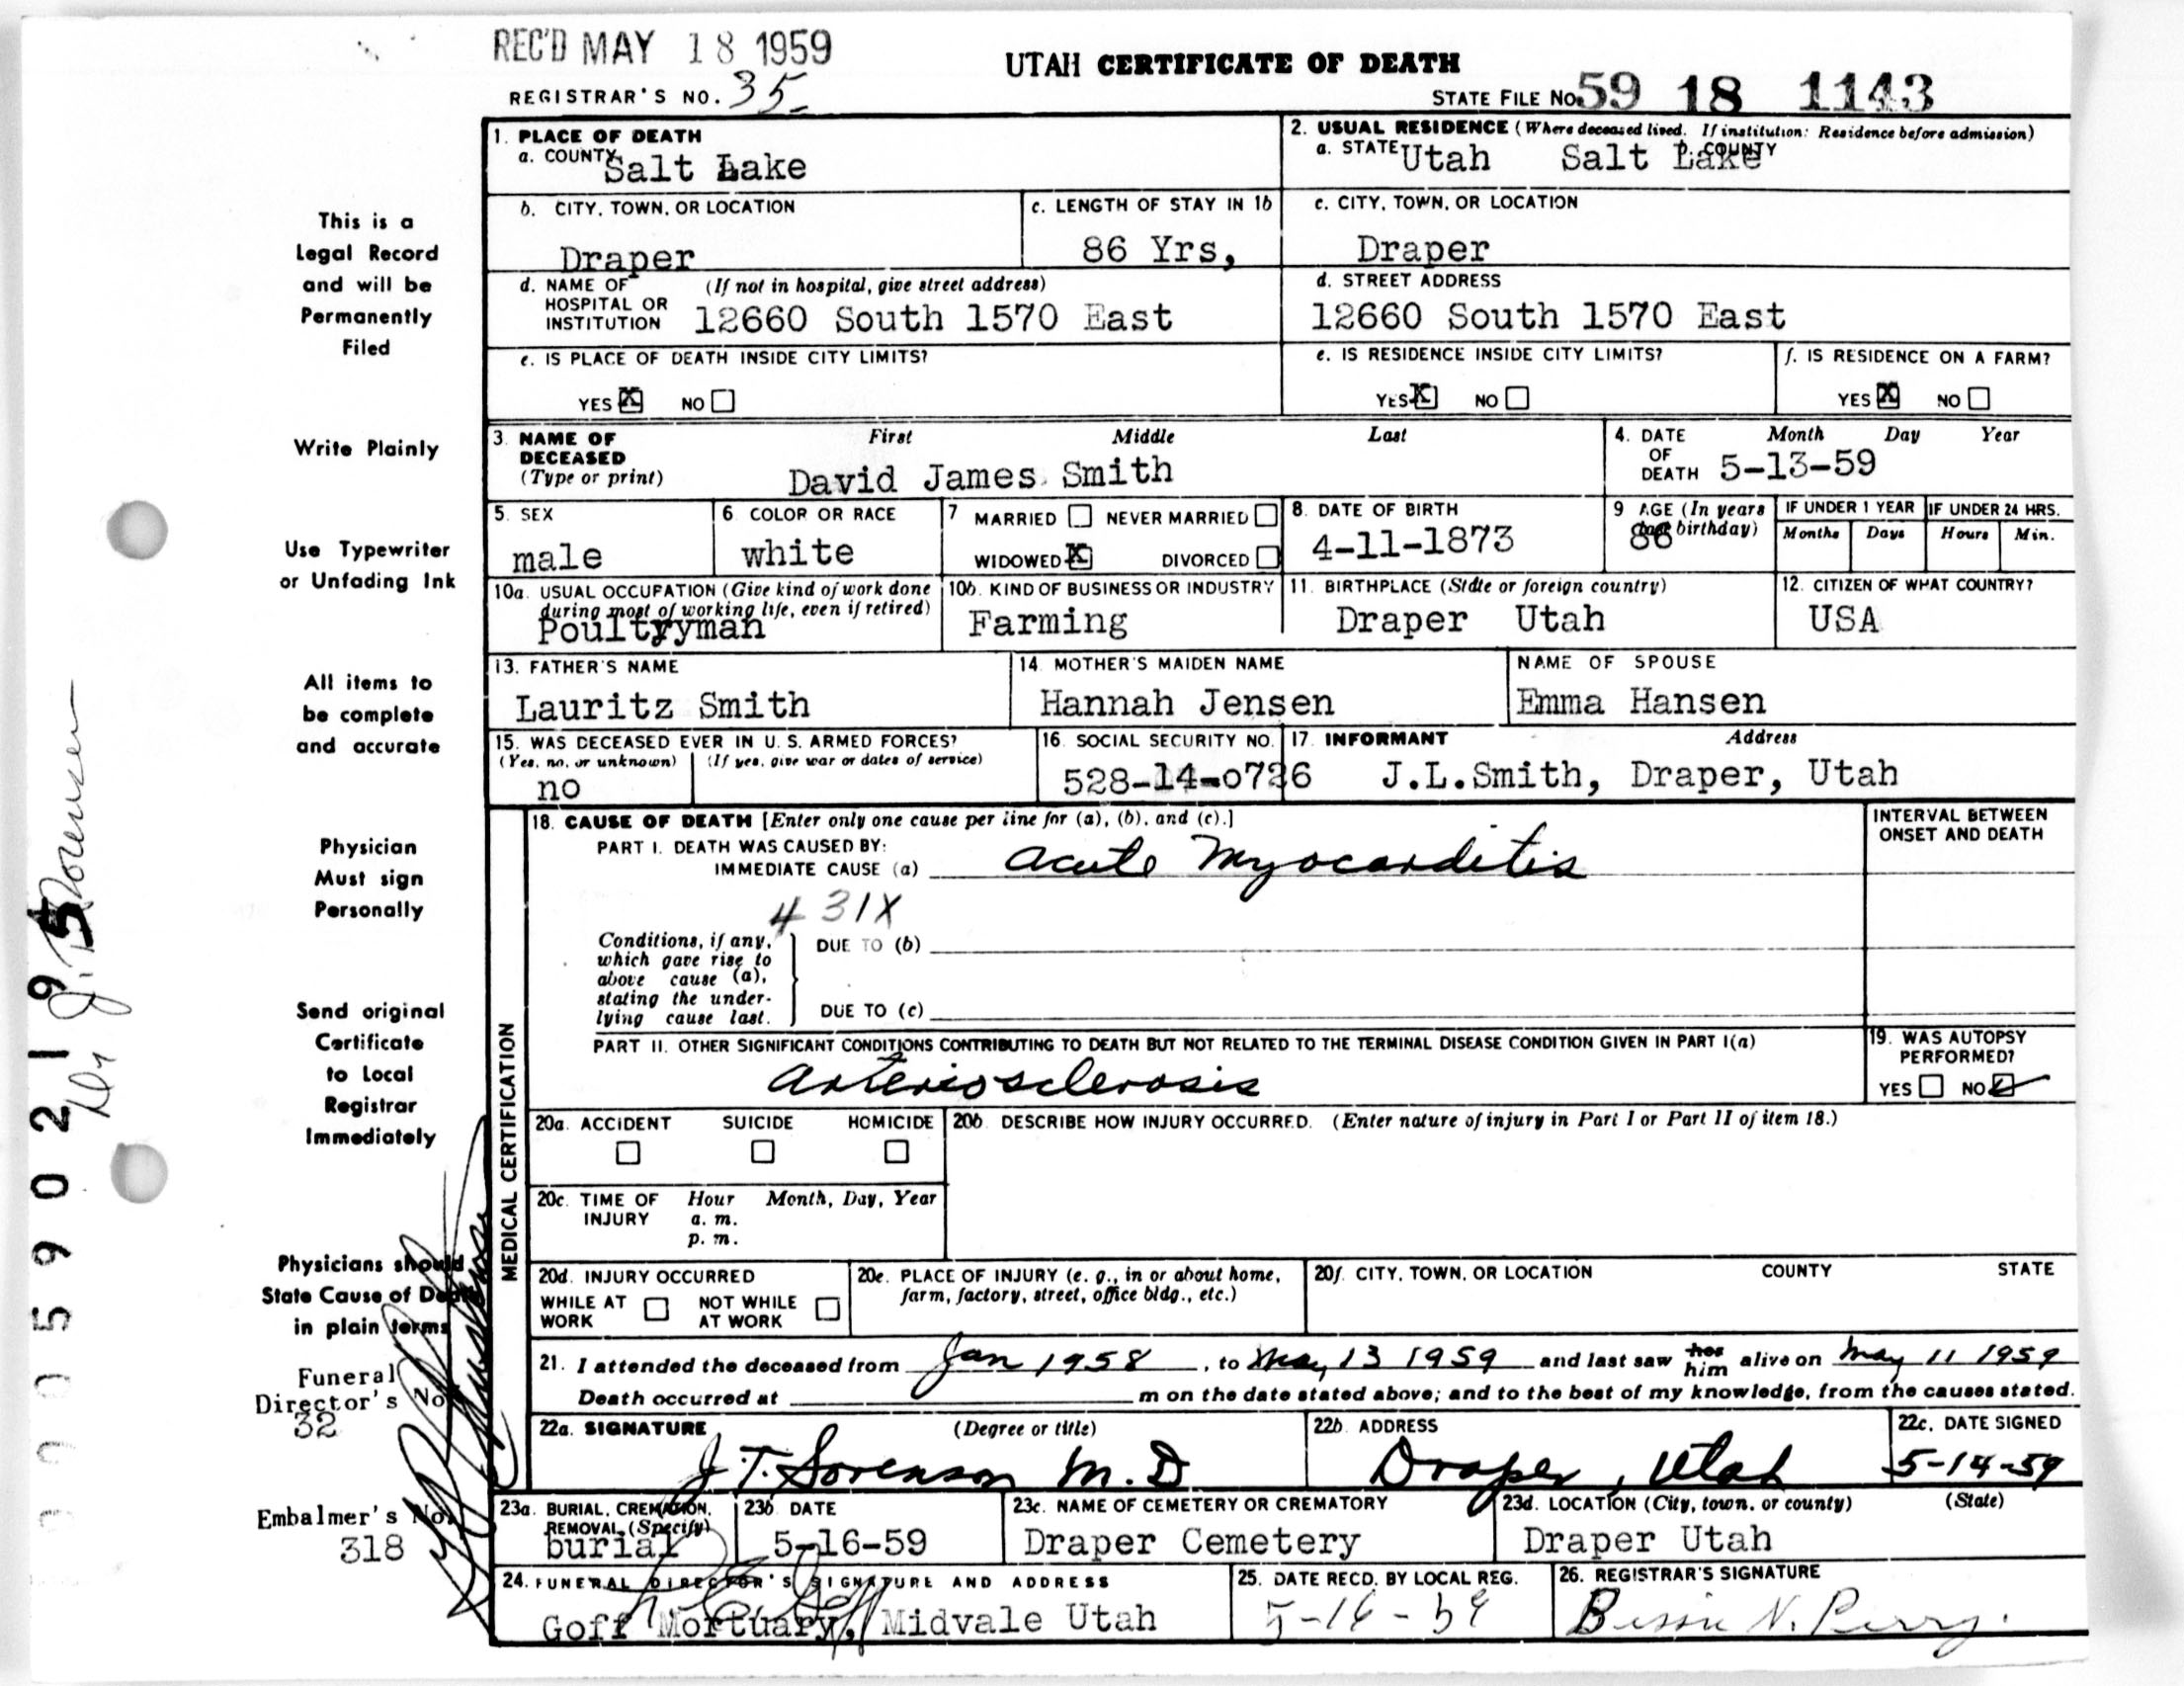 REC'D MAY 18 1959
UTAH CERTIFICATE OF DEATH
REGISTRAR'S NO. 35
STATE FILE No. 59 18 1143
1. PLACE OF DEATH
a. COUNTY Salt Lake
2. USUAL RESIDENCE (Where deceased lived. If institution: Residence before admission)
a. STATE Utah COUNTY Salt Lake
b. CITY, TOWN, OR LOCATION
Draper
c. LENGTH OF STAY IN 1b
86 Yrs,
c. CITY, TOWN, OR LOCATION
Draper
d. NAME OF HOSPITAL OR INSTITUTION (If not in hospital, give street address)
12660 South 1570 East
d. STREET ADDRESS
12660 South 1570 East
e. IS PLACE OF DEATH INSIDE CITY LIMITS?
YES X NO
e. IS RESIDENCE INSIDE CITY LIMITS?
YES X NO
f. IS RESIDENCE ON A FARM?
YES X NO
3. NAME OF DECEASED (Type or print)
First Middle Last
David James Smith
4. DATE OF DEATH
Month Day Year
5-13-59
5. SEX
male
6. COLOR OR RACE
white
7 MARRIED NEVER MARRIED
WIDOWED X DIVORCED
8. DATE OF BIRTH
4-11-1873
9 AGE (In years last birthday)
86
IF UNDER 1 YEAR
Months Days
IF UNDER 24 HRS.
Hours Min.
10a. USUAL OCCUPATION (Give kind of work done during most of working life, even if retired)
Poultryman
10b. KIND OF BUSINESS OR INDUSTRY
Farming
11. BIRTHPLACE (State or foreign country)
Draper Utah
12. CITIZEN OF WHAT COUNTRY?
USA
13. FATHER'S NAME
Lauritz Smith
14. MOTHER'S MAIDEN NAME
Hannah Jensen
NAME OF SPOUSE
Emma Hansen
15. WAS DECEASED EVER IN U. S. ARMED FORCES?
(Yes, no, or unknown) (If yes, give war or dates of service)
no
16. SOCIAL SECURITY NO.
528-14-0726
17. INFORMANT Address
J.L.Smith, Draper, Utah
MEDICAL CERTIFICATION
18. CAUSE OF DEATH [Enter only one cause per line for (a), (b), and (c).]
INTERVAL BETWEEN ONSET AND DEATH
PART I. DEATH WAS CAUSED BY:
IMMEDIATE CAUSE (a) acute Myocarditis
431X
Conditions, if any, which gave rise to above cause (a), stating the underlying cause last.
DUE TO (b)
DUE TO (c)
PART II. OTHER SIGNIFICANT CONDITIONS CONTRIBUTING TO DEATH BUT NOT RELATED TO THE TERMINAL DISEASE CONDITION GIVEN IN PART I(a)
arteriosclerosis
19. WAS AUTOPSY PERFORMED?
YES NO
20a. ACCIDENT SUICIDE HOMICIDE
20b. DESCRIBE HOW INJURY OCCURRED. (Enter nature of injury in Part I or Part II of item 18.)
20c. TIME OF INJURY Hour Month, Day, Year
a. m.
p. m.
20d. INJURY OCCURRED
WHILE AT WORK NOT WHILE AT WORK
20e. PLACE OF INJURY (e. g., in or about home, farm, factory, street, office bldg., etc.)
20f. CITY, TOWN, OR LOCATION COUNTY STATE
21. I attended the deceased from Jan 1958, to May 13 1959 and last saw her him alive on May 11 1959
Death occurred at m on the date stated above; and to the best of my knowledge, from the causes stated.
22a. SIGNATURE (Degree or title)
J. T. Sorenson M.D
22b. ADDRESS
Draper, Utah
22c. DATE SIGNED
5-14-59
23a. BURIAL, CREMATION, REMOVAL (Specify)
burial
23b. DATE
5-16-59
23c. NAME OF CEMETERY OR CREMATORY
Draper Cemetery
23d. LOCATION (City, town, or county) (State)
Draper Utah
24. FUNERAL DIRECTOR'S SIGNATURE AND ADDRESS
Goff Mortuary, Midvale Utah
25. DATE RECD. BY LOCAL REG.
5-16-59
26. REGISTRAR'S SIGNATURE
Bessie N. Perry.
This is a
Legal Record
and will be
Permanently
Filed
Write Plainly
Use Typewriter
or Unfading Ink
All items to
be complete
and accurate
Physician
Must sign
Personally
Send original
Certificate
to Local
Registrar
Immediately
Physicians should
State Cause of Death
in plain terms
Funeral
Director's No.
32
Embalmer's No.
318
Dr J. Sorensen